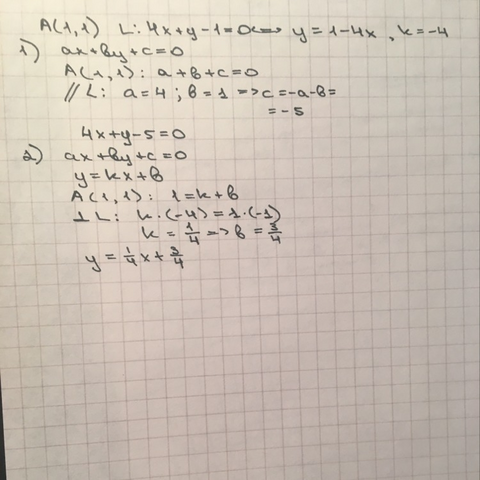 A(1,1) L: 4x+y-1=0 <=> y=1-4x, k=-4
1) ax+by+c=0
A(1,1): a+b+c=0
// L: a=4; b=1 => c=-a-b=
=-5
4x+y-5=0
2) ax+by+c=0
y=kx+b
A(1,1): 1=k+b
⊥ L: k·(-4)=1·(-1)
k=1/4 => b=3/4
y=1/4x+3/4